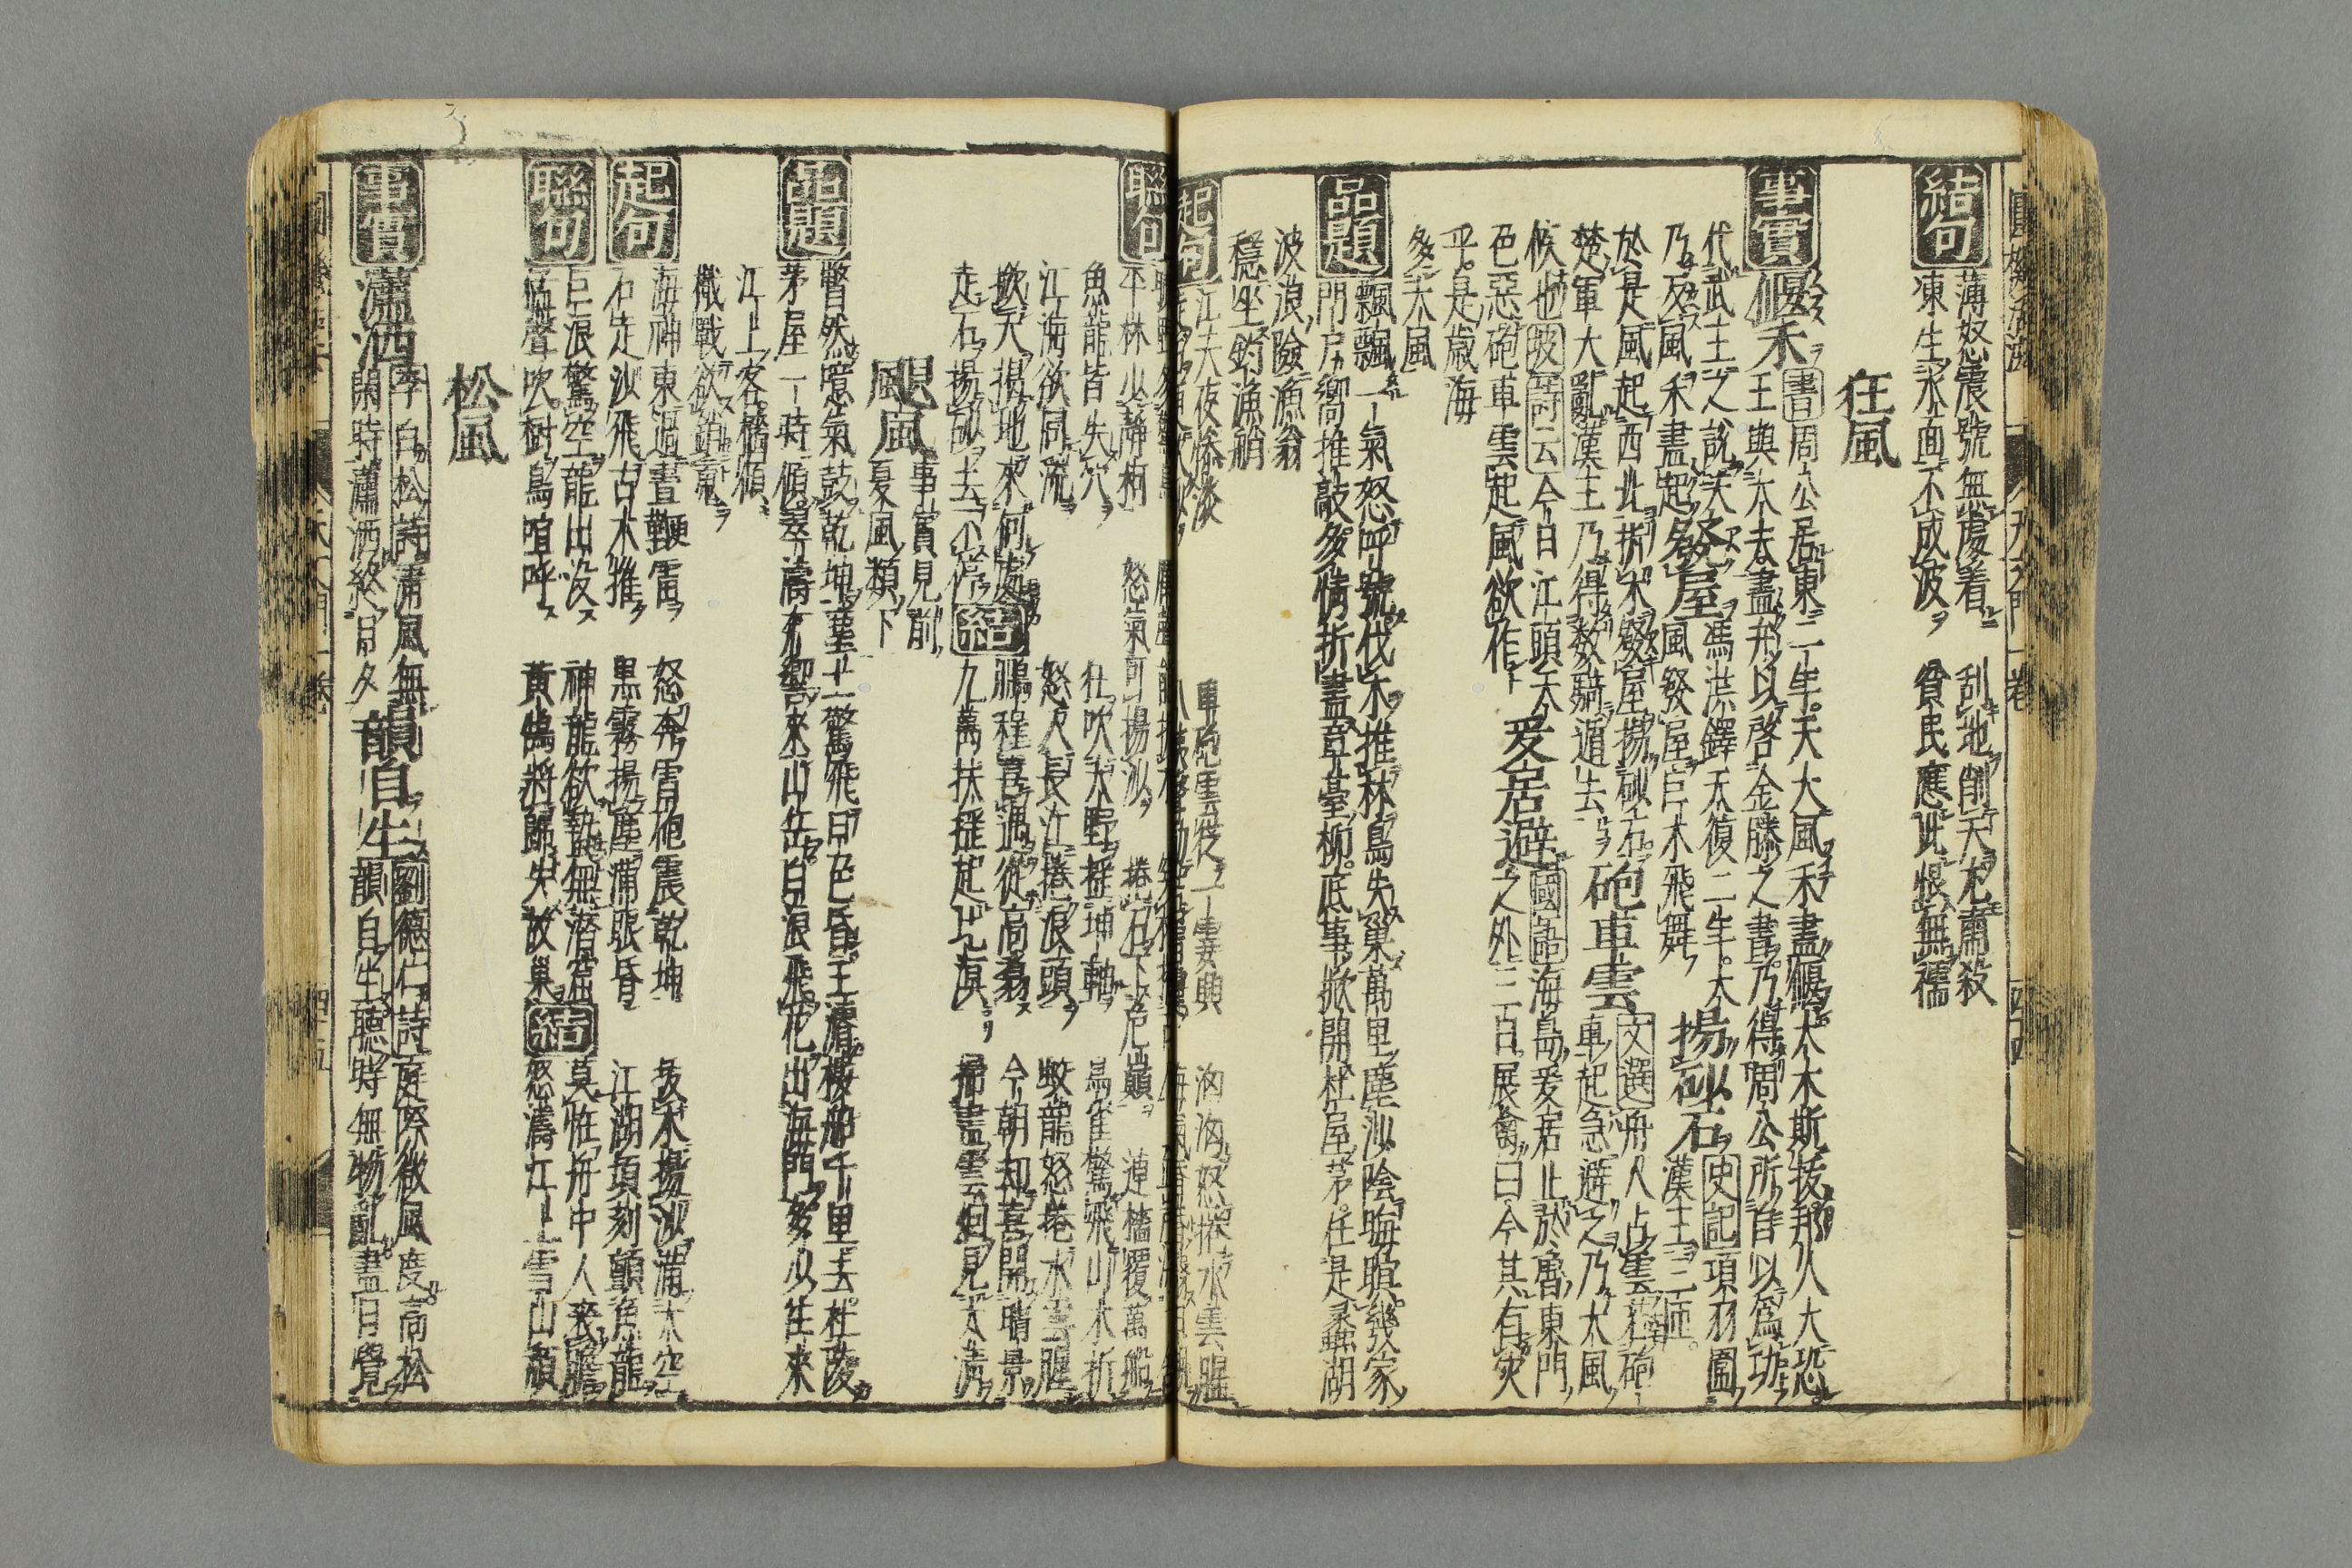 結句
薄怒震號無處着 刮地削天尤肅殺
凍生水面不成波 貧民應此恨無襦
狂風
事實
偃禾
書周公居東二年天大風禾盡偃大木斯拔邦人大恐
王與大夫盡弁以啓金縢之書乃得周公所自以爲功
代武王之說天
乃反風禾盡起
發屋
馮洪鐸天復二年大
風發屋巨木飛舞
揚砂石
史記項羽圍
漢王三匝
於是風起西北折木發屋揚砂石
楚軍大亂漢王乃得数騎遁去
砲車雲
文選舟人占雲若砲
車起急避之乃大風
候也坡詩云今日江頭天
色惡砲車雲起風欲作
爰居避
國語海鳥爰居止於魯東門
之外三日展禽曰今其有灾
乎是歳海
多大風
品題
飄飄一氣怒呼號伐木推林鳥失巢萬里塵沙陰晦暝幾家
門戶響推敲多情折盡章臺柳底事掀開杜屋茅任是五湖
波浪險漁翁
穩坐釣漁艄
起句
江天夜慘淡 車砲雲從一處興 洶洶怒捲水雲腥
聯句
平林少靜柯 怒氣可揚沙 捲石下危巓 連檣覆萬船
魚龍皆失穴 狂吹大野搖坤軸 鳥雀驚飛山木折
江海欲同流 怒及長江捲浪頭 蛟龍怒捲水雲腥
掀天揭地來何處 鵬程喜遇從高翥 今朝却喜開晴景
走石揚砂去不停 結 九萬扶搖起北溟 掃盡雲烟見太清
颶風
事實見前
夏風類下
品題
瞥然噫氣鼓乾坤塵土驚飛日色昏王濬樓船千里去杜陵
茅屋一時傾翠濤有響來山岳白浪飛花出海門多少往來
江上客檣傾
檝戰欲銷䰟
起句
海神東過晝鞭雷 怒奔雷砲震乾坤 拔木揚沙滿太空
石走沙飛古木摧 黒霧揚塵滿眼昏 江湖頃刻顫魚龍
聯句
巨浪驚空龍出没 神龍欲蟄無潜窟 莫恠舟中人喪膽
猛聲吹樹鳥喧呼 黃鵠將歸失故巢 結 怒濤江上雪山頹
松風
事實
瀟洒
李白松詩清風無
閑時瀟洒終日夕
韻自生
劉德仁詩庭際微風度高松
韻自生聽時無物亂盡日覺